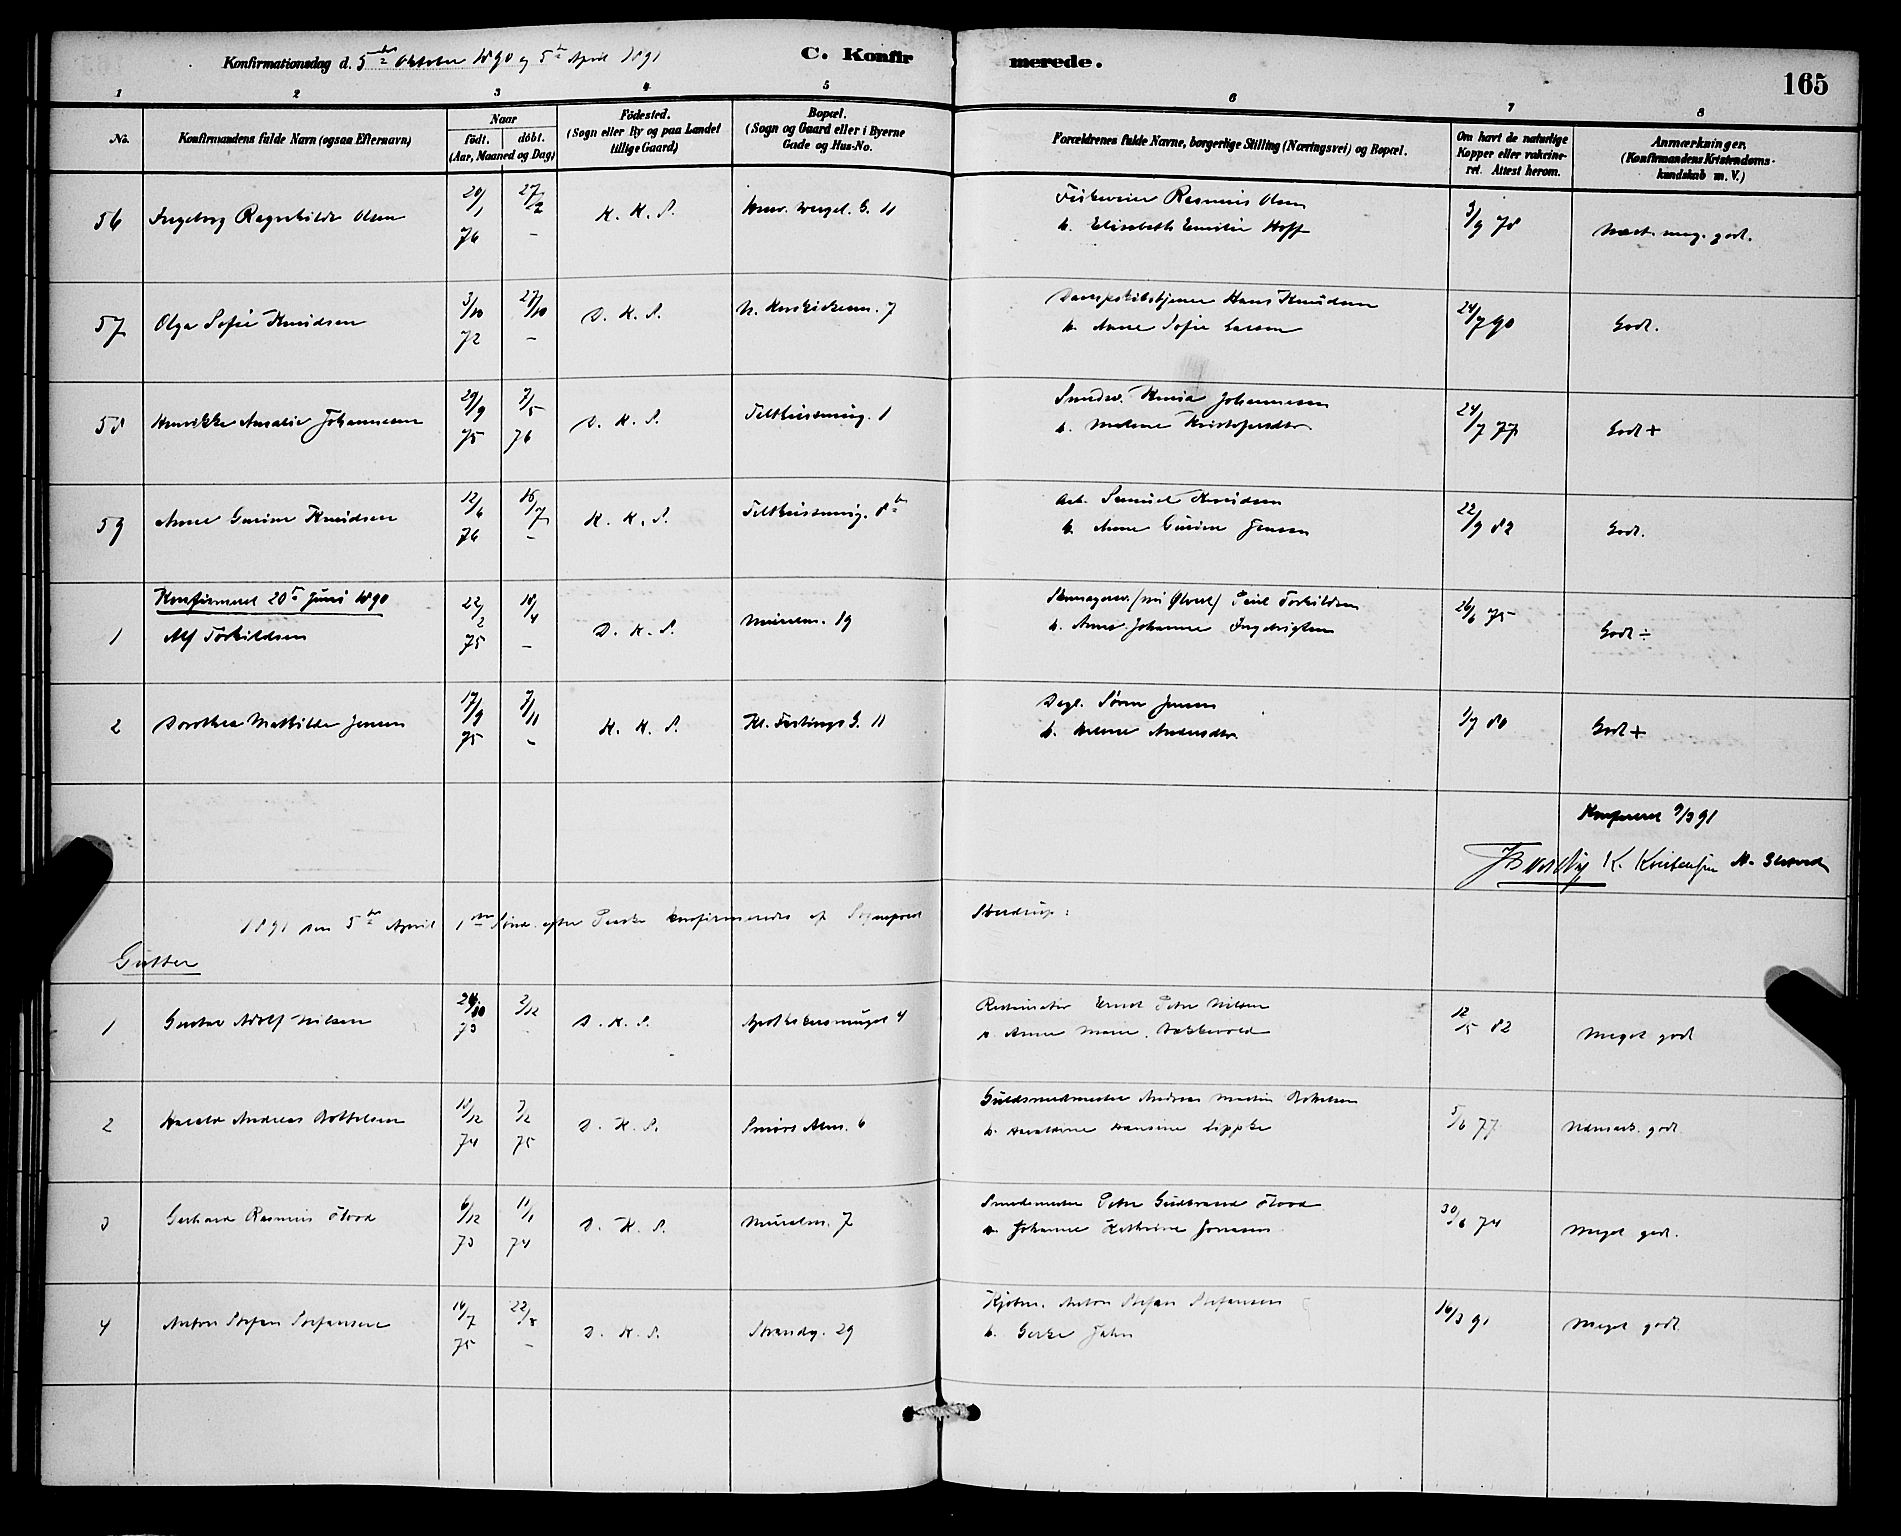 Konfirmationsdag d. 5te Oktober 1890 og 5te April 1891
C. Konfirmerede.
165
1 2 3 4 5 6 7 8
No.
Konfirmandens fulde Navn (ogsaa Efternavn)
Naar
Födt. döbt.
(Aar, Maaned og Dag)
Födested.
(Sogn eller By og paa Landet
tillige Gaard)
Bopæl.
(Sogn og Gaard eller i Byerne
Gade og Hus-No.
Forældrenes fulde Navne, borgerlige Stilling (Næringsvei) og Bopæl.
Om havt de naturlige
Kopper eller vakcine-
ret. Attest herom.
Anmærkninger.
(Konfirmandens Kristendoms-
kundskab m. V.)
56 Ingeborg Ragnhilde Olsen 20/1 76 27/2 - K. K. S. Henr. Wergel. G. 11 Fiskeveier Rasmus Olsen
h. Elisabeth Emilie Hoff 3/9 78 Næst. meg. godt.
57 Olga Sofie Knudsen 3/10 72 27/10 - D. K. S. N. Korskirkealm. 7 Dampskibstjener Hans Knudsen
h. Anne Sofie Larsen 24/7 90 Godt.
58 Henrikke Amalie Johannesen 29/9 75 7/5 76 D. K. S. Telthussmug. 1 Smedsv. Knud Johannesen
h. Malene Kristofersdtr. 24/7 77 Godt +
59 Anne Gurine Knudsen 12/6 76 16/7 - K. K. S. Telthussmug. 8b Arb. Samuel Knudsen
h. Anne Gurine Jensen 22/9 82 Godt.
Konfirmeret 20de Juni 1890
1 Alf Torkildsen 22/2 75 18/4 - D. K. S. Muralm. 19 Skomagersv. Paul Torkildsen
h. Anna Johanne Ingebrigtsen 26/6 75 Godt ÷
2 Dorothea Mathilde Jensen 17/9 75 7/11 - K. K. S. Kl. Fæstings G. 11 Dagl. Sören Jensen
h. Helene Andersdtr 1/7 80 Godt +
Konfereret 9/3 91
K. Kristensen
1891 den 5te April 1ste Sönd. efter Paaske konfirmeredes af Sognepræst Sverdrup:
Gutter
1 Gustav Adolf Nilsen 24/10 73 2/12 - D. K. S. Apothekersmuget 4 Restauratör Ernst Peter Nilsen
h. Anne Marie 12/5 82 Meget godt
2 Harald Andreas Bottolfsen 18/12 74 7/2 75 D. K. S. Smörs Alm. 6 Guldsmedmester Andreas Martin
h. Haraldine Hansine Lippke 5/6 77 Udmærk. godt.
3 Gerhard Rasmus Flood 6/12 73 11/1 74 D. K. S. Muralm. 7 Smedemester Peter Gudbrand Flood
h. Johanne Kathrine Jonasen 30/6 74 Meget godt.
4 Anton Stefan Stefansen 14/7 75 22/8 - D. K. S. Strandg. 29 Kjöbm. Anton Stefan Stefansen
h. Gerke Jahn 16/3 91 Meget godt.